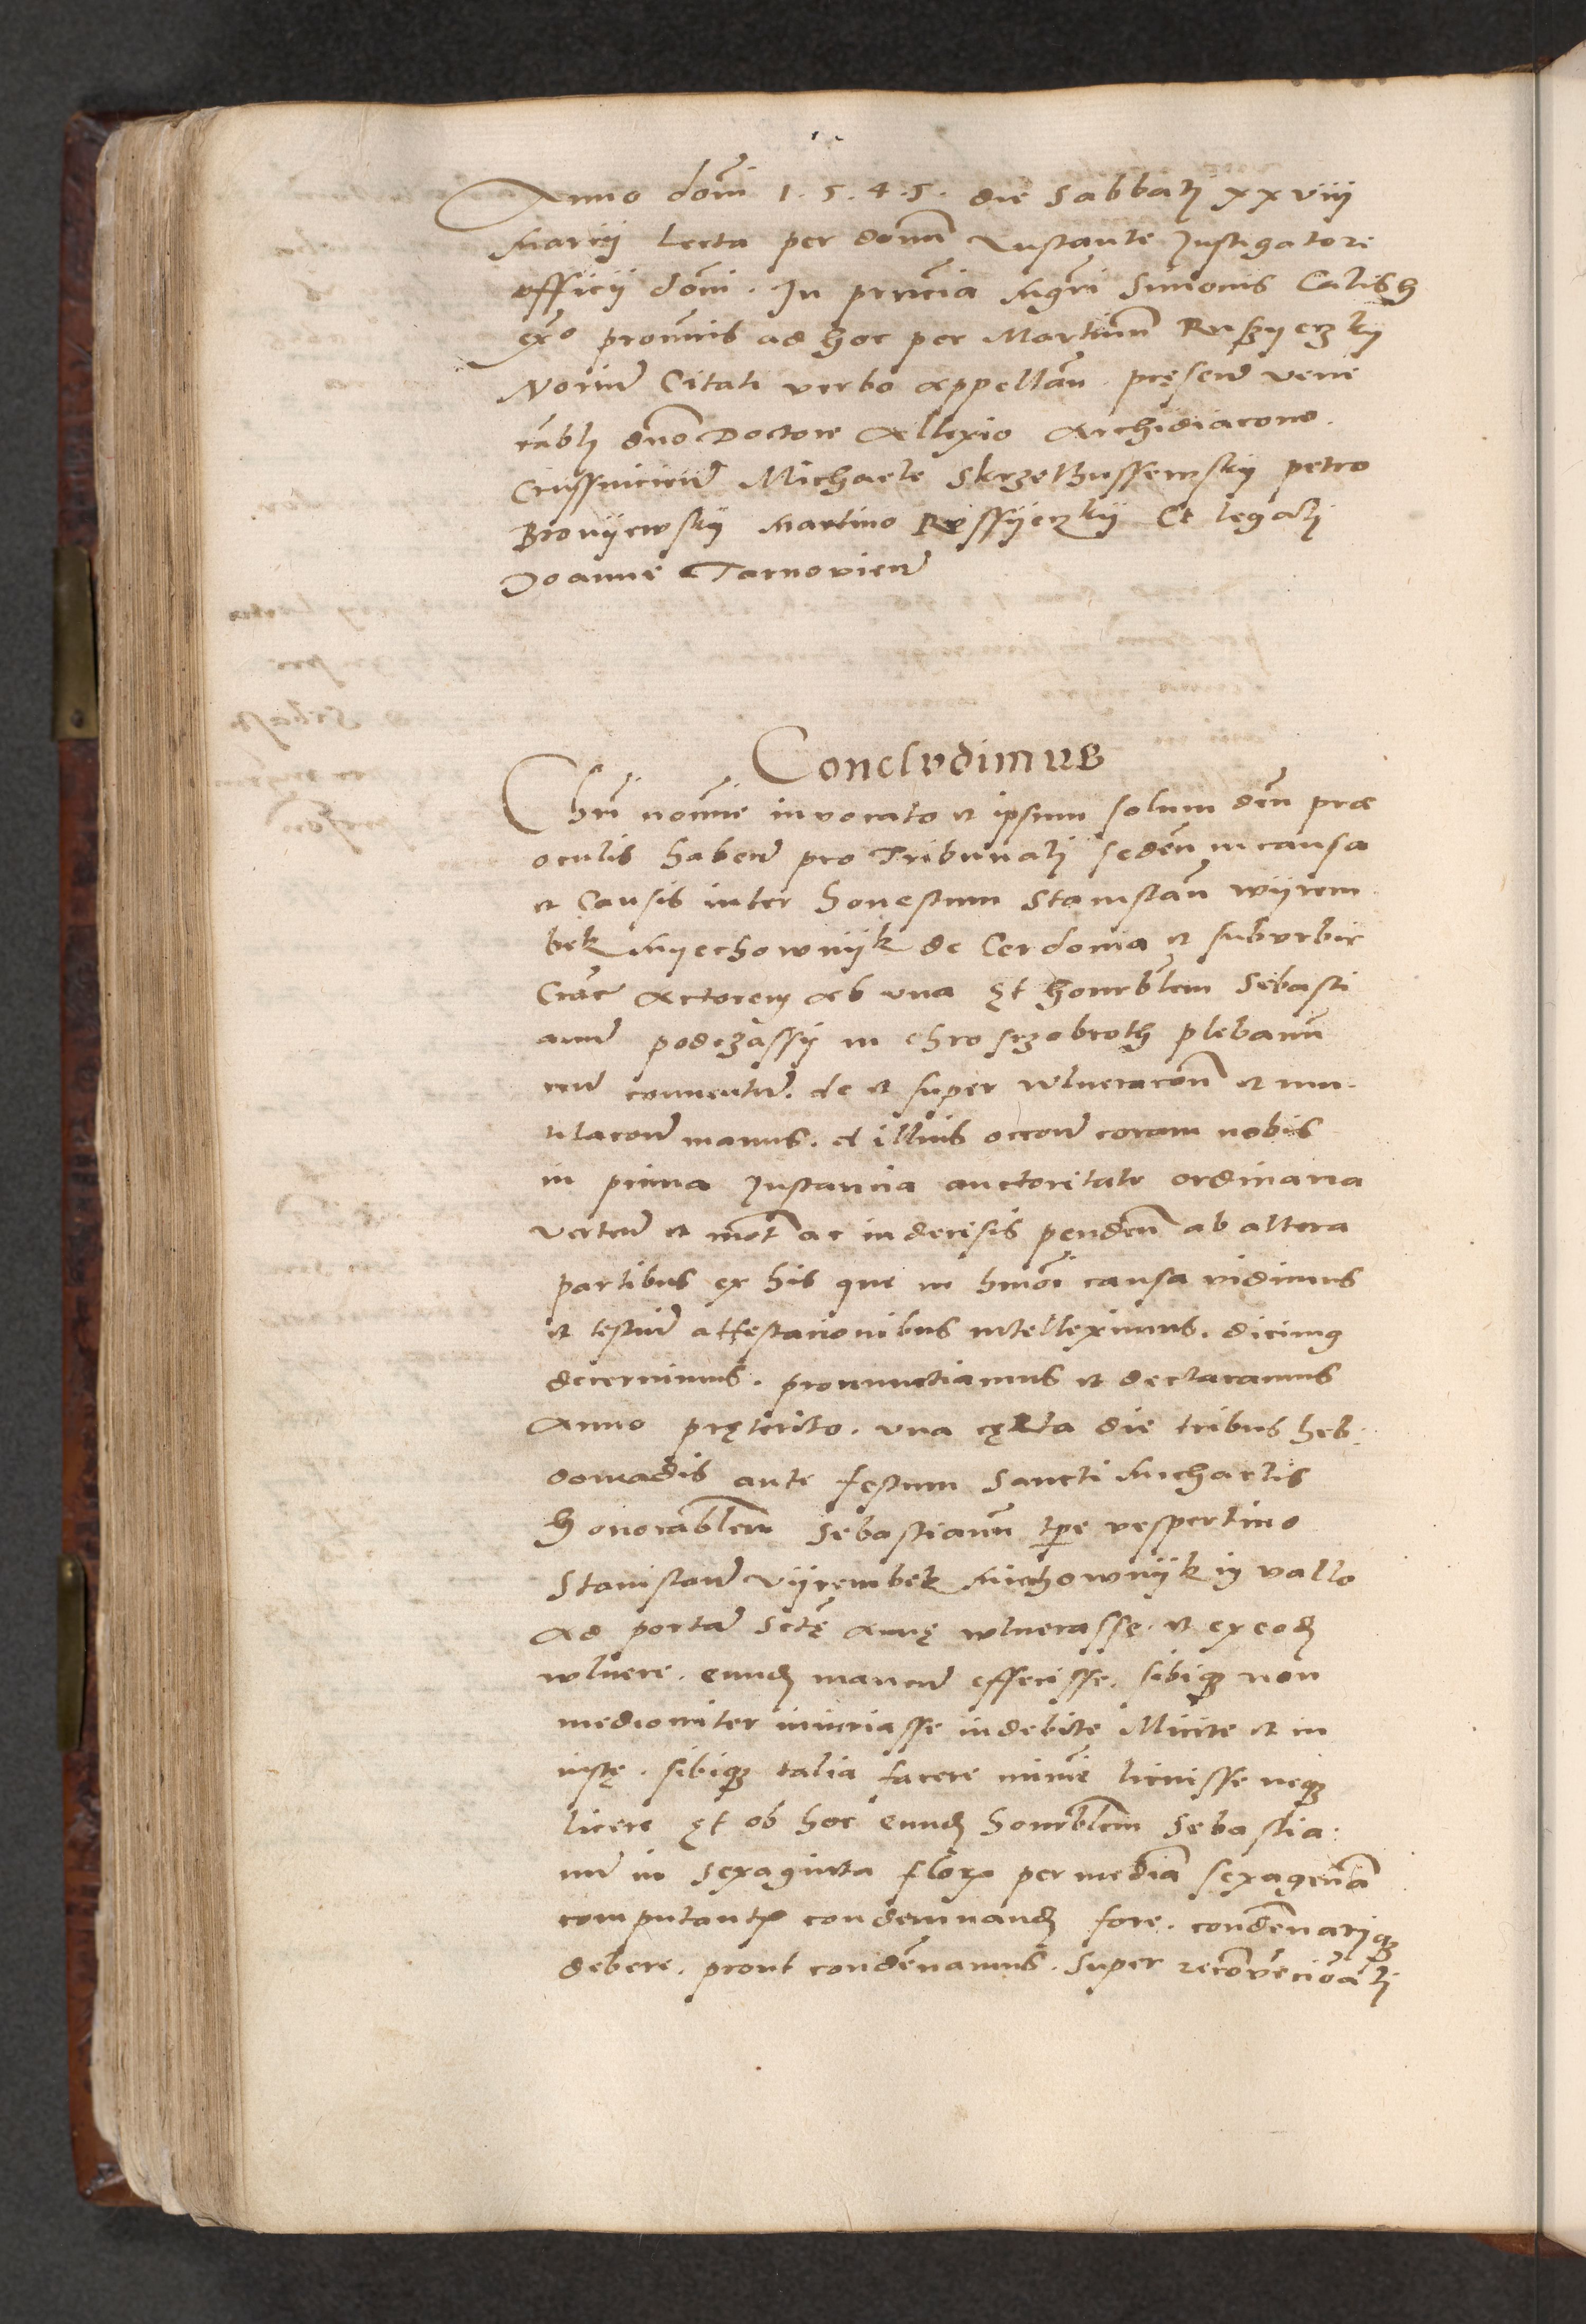 Anno domi 1.5.4.5. die Sabbati xxviij
Marcij lecta per donum Instante Instigatore
officij domi. In prntia Mgri Simonis Calish
pronoris ad hoc per Martinum
Notrium Citati verbo appellan. presen vene
rabli dno Doctore Allexio Archidiacono
Crussvicien Michaele petro
Bronyewsky Martino Et legali
Joanne Tarnovien
Concludimus
Chri nomine invocato et ipsum solum deum prae
oculis haben pro Tribunali seden in causa
et Causis inter honestum Stanislaum Wyrem
bek Myechownyk de Cerdonia et suburbio
Crac Actorem ab una Et honorblem Sebasti
anum podczassy in chrosczobroth plebanum
reum conventum. de et super wlneracone et mu.
tilacone manus. et illius occone coram nobis
in prima Instancia auctoritate ordinaria
verten et mot ac indecisis penden ab altera
partibus ex his que in hmoi causa vidimus
et testium attestacionibus intelleximus. dicimus
decernimus. pronunctiamus et declaramus
Anno preterito. una certa die tribus heb:
domadis ante festum Sancti Michaelis
Honorablem Sebastianum tpe vespertino
Stanislaum Vyrembek Miechownyk in vallo
Ad portam Scte Anne wlnerasse. et ex eod
wlnere. eund mancum effecisse. sibique non
mediocriter iniuriasse indebite Illicite et in
iuste. sibique talia facere minime licuisse neque
licere Et ob hoc eund honorblem Sebastia:
num in sexaginta flor per mediam sexagenam
computant condemnand fore. condemnarique
debere. prout condemnamus. Super reconvencionali